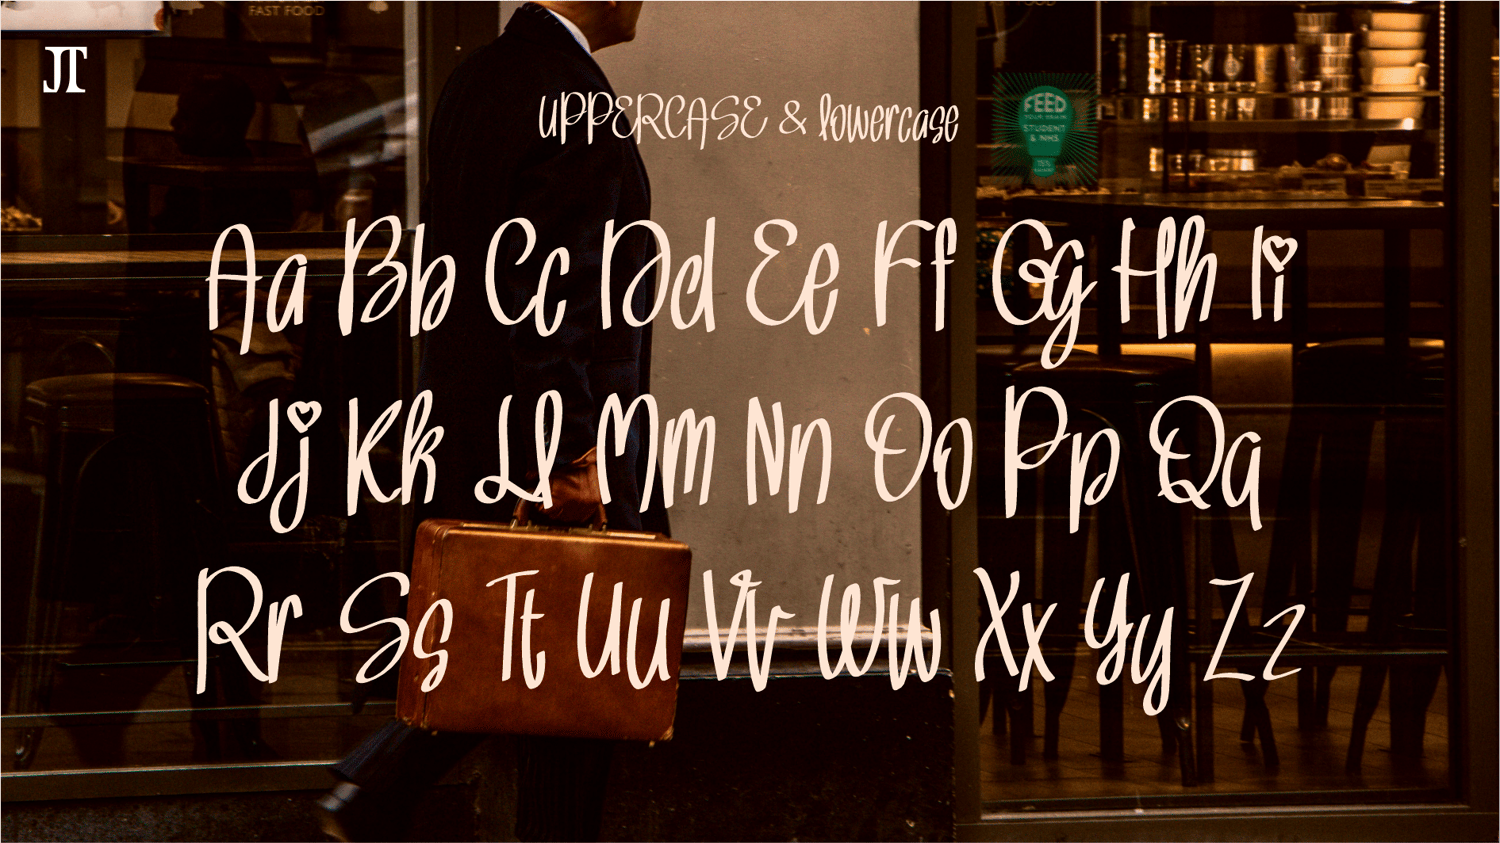 FAST FOOD
JT
UPPERCASE & lowercase
FEED
STUDENT
& NHS
15%
Aa Bb Cc Dd Ee Ff Gg Hh Ii
Jj Kk Ll Mm Nn Oo Pp Qq
Rr Ss Tt Uu Vv Ww Xx Yy Zz